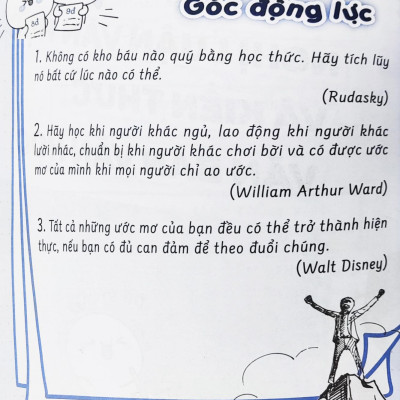 Góc động lực
1. Không có kho báu nào quý bằng học thức. Hãy tích lũy
nó bất cứ lúc nào có thể.
(Rudasky)
2. Hãy học khi người khác ngủ, lao động khi người khác
lười nhác, chuẩn bị khi người khác chơi bời và có được ước
mơ của mình khi mọi người chỉ ao ước.
(William Arthur Ward)
3. Tất cả những ước mơ của bạn đều có thể trở thành hiện
thực, nếu bạn có đủ can đảm để theo đuổi chúng.
(Walt Disney)